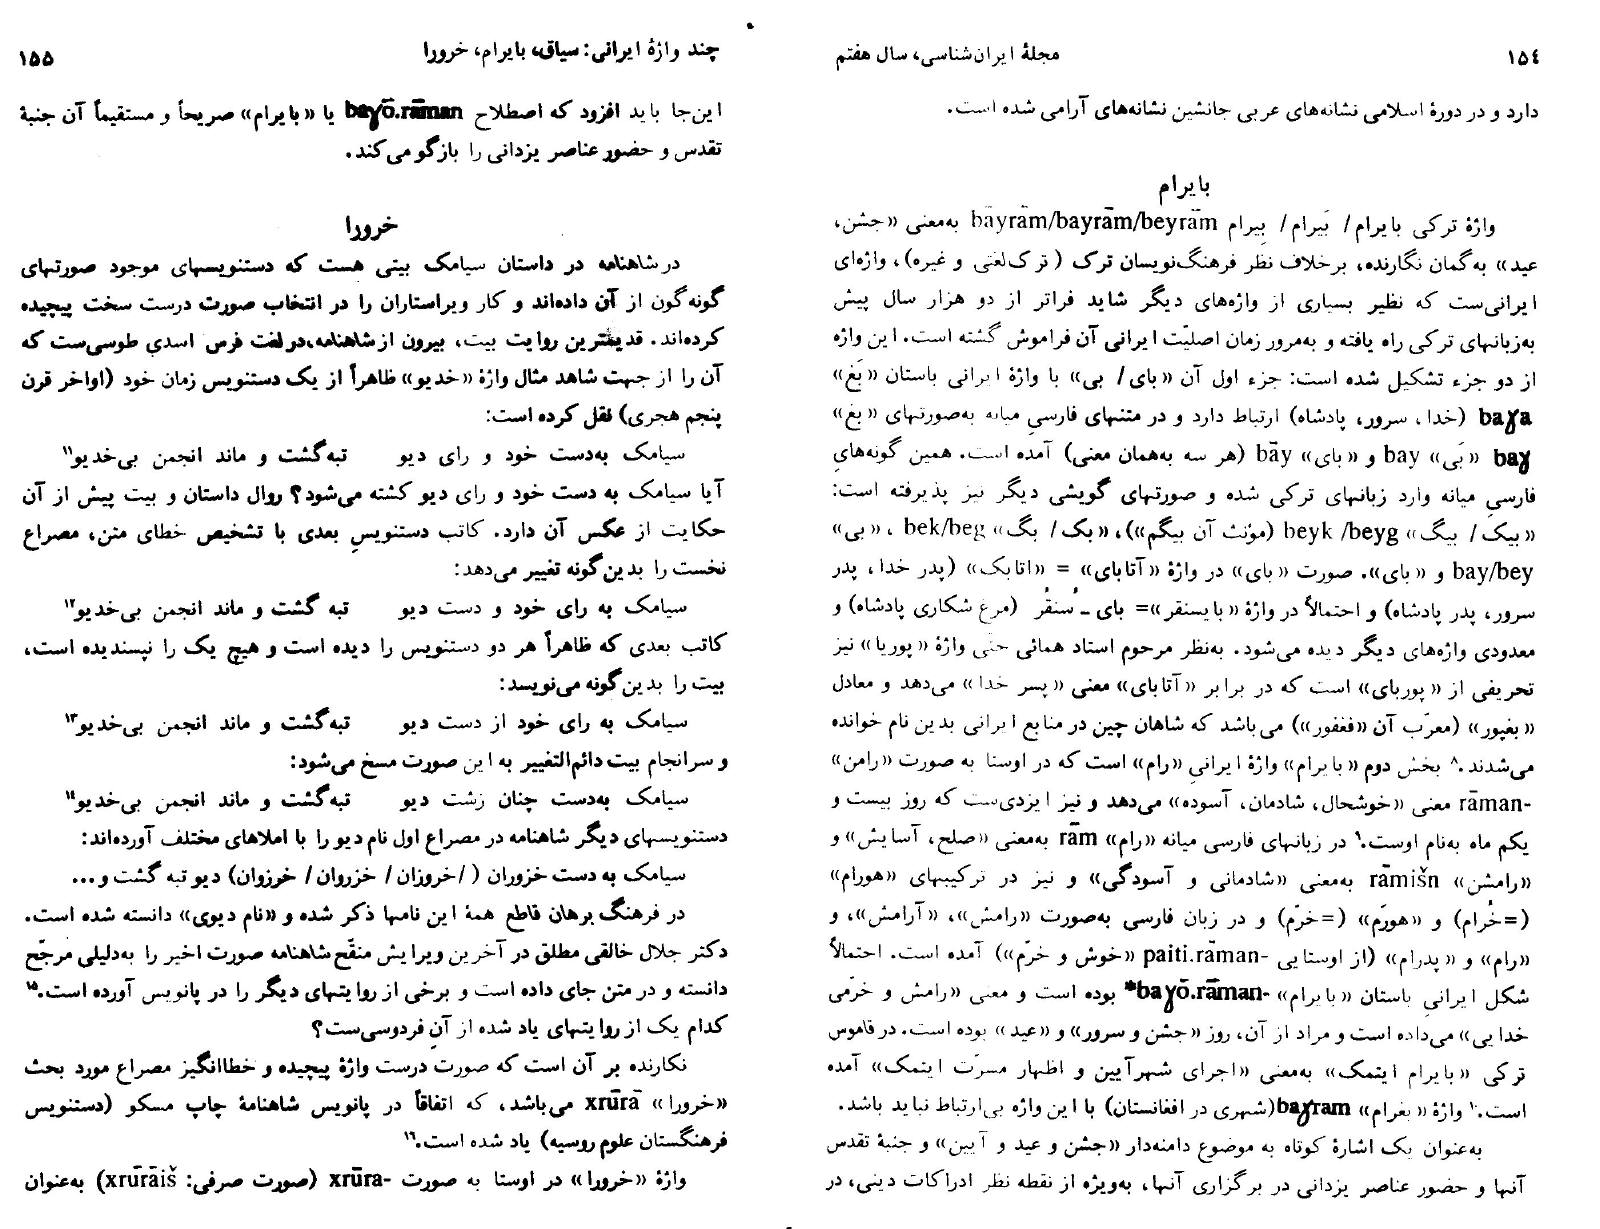 ۱۵٤
مجلهٔ ایران‌شناسی، سال هفتم
دارد و در دورهٔ اسلامی نشانه‌های عربی جانشین نشانه‌های آرامی شده است.
بایرام
واژهٔ ترکی بایرام/ بَیرام/ بِیرام bāyrām/bayrām/beyrām به‌معنی «جشن،
عید» به‌گمان نگارنده، برخلاف نظر فرهنگ‌نویسان ترک (ترک‌لغتی و غیره)، واژه‌ای
ایرانی‌ست که نظیر بسیاری از واژه‌های دیگر شاید فراتر از دو هزار سال پیش
به‌زبانهای ترکی راه یافته و به‌مرور زمان اصلیّت ایرانی آن فراموش گشته است. این واژه
از دو جزء تشکیل شده است: جزء اول آن «بای/ بی» با واژهٔ ایرانی باستان «بَغَ»
baɣa (خدا، سرور، پادشاه) ارتباط دارد و در متنهای فارسیِ میانه به‌صورتهای «بغ»
baɣ «بَی» bay و «بای» bāy (هر سه به‌همان معنی) آمده است. همین گونه‌های
فارسیِ میانه وارد زبانهای ترکی شده و صورتهای گویشی دیگر نیز پذیرفته است:
«بیک/ بیگ» beyk /beyg (مؤنث آن بیگم»)، «بک/ بگ» bek/beg، «بی»
bay/bey و «بای». صورت «بای» در واژهٔ «آتابای» = «اتابک» (پدر خدا، پدر
سرور، پدر پادشاه) و احتمالاً در واژهٔ «بایسنقر»= بای ـ سُنقُر (مرغ شکاری پادشاه) و
معدودی واژه‌های دیگر دیده می‌شود. به‌نظر مرحوم استاد همائی حتّی واژهٔ «پوریا» نیز
تحریفی از «پوربای» است که در برابر «آتابای» معنی «پسر خدا» می‌دهد و معادل
«بغپور» (معرّب آن «فغفور») می‌باشد که شاهان چین در منابع ایرانی بدین نام خوانده
می‌شدند.۸ بخش دوم «بایرام» واژهٔ ایرانیِ «رام» است که در اوستا به صورت «رامن»
rāman- معنی «خوشحال، شادمان، آسوده» می‌دهد و نیز ایزدی‌ست که روز بیست و
یکم ماه به‌نام اوست.۹ در زبانهای فارسی میانه «رام» rām به‌معنی «صلح، آسایش» و
«رامشن» rāmišn به‌معنی «شادمانی و آسودگی» و نیز در ترکیبهای «هورام»
(=خُرام) و «هورَم» (=خرّم) و در زبان فارسی به‌صورت «رامش»، «آرامش»، و
«رام» و «پدرام» (از اوستایی paiti.rāman- «خوش و خرّم») آمده است. احتمالاً
شکل ایرانیِ باستان «بایرام» *baɣō.rāman- بوده است و معنی «رامش و خرّمی
خدایی» می‌داده است و مراد از آن، روز «جشن و سرور» و «عید» بوده است. در قاموس
ترکی «بایرام ایتمک» به‌معنی «اجرای شهرآیین و اظهار مسرّت ایتمک» آمده
است.۱۰ واژهٔ «بغرام» baɣram(شهری در افغانستان) با این واژه بی‌ارتباط نباید باشد.
به‌عنوان یک اشارهٔ کوتاه به موضوع دامنه‌دار «جشن و عید و آیین» و جنبهٔ تقدس
آنها و حضور عناصر یزدانی در برگزاری آنها، به‌ویژه از نقطه نظر ادراکات دینی، در
چند واژهٔ ایرانی: سیاق، بایرام، خرورا
۱۵۵
این‌جا باید افزود که اصطلاح baɣō.rāman یا «بایرام» صریحاً و مستقیماً آن جنبهٔ
تقدس و حضور عناصر یزدانی را بازگو می‌کند.
خرورا
در شاهنامه در داستان سیامک بیتی هست که دستنویسهای موجود صورتهای
گونه‌گون از آن داده‌اند و کار ویراستاران را در انتخاب صورت درست سخت پیچیده
کرده‌اند. قدیمترین روایت بیت، بیرون از شاهنامه،در لغت فرس اسدیِ طوسی‌ست که
آن را از جهت شاهد مثال واژهٔ «خدیو» ظاهراً از یک دستنویس زمان خود (اواخر قرن
پنجم هجری) نقل کرده است:
سیامک به‌دست خود و رای دیو تبه‌گشت و ماند انجمن بی‌خدیو۱۱
آیا سیامک به دست خود و رای دیو کشته می‌شود؟ روال داستان و بیت پیش از آن
حکایت از عکس آن دارد. کاتب دستنویسِ بعدی با تشخیص خطای متن، مصراع
نخست را بدین‌گونه تغییر می‌دهد:
سیامک به رای خود و دست دیو تبه گشت و ماند انجمن بی‌خدیو۱۲
کاتب بعدی که ظاهراً هر دو دستنویس را دیده است و هیچ یک را نپسندیده است،
بیت را بدین‌گونه می‌نویسد:
سیامک به رای خود از دست دیو تبه‌گشت و ماند انجمن بی‌خدیو۱۳
و سرانجام بیت دائم‌التغییر به این صورت مسخ می‌شود:
سیامک به‌دست چنان زشت دیو تبه‌گشت و ماند انجمن بی‌خدیو۱۴
دستنویسهای دیگر شاهنامه در مصراع اول نام دیو را با املاهای مختلف آورده‌اند:
سیامک به دست خزوران (/خروزان/ خزروان/ خرزوان) دیو تبه گشت و...
در فرهنگ برهان قاطع همهٔ این نامها ذکر شده و «نام دیوی» دانسته شده است.
دکتر جلال خالقی مطلق در آخرین ویرایش منقّح شاهنامه صورت اخیر را به‌دلیلی مرجّح
دانسته و در متن جای داده است و برخی از روایتهای دیگر را در پانویس آورده است.۱۵
کدام یک از روایتهای یاد شده از آنِ فردوسی‌ست؟
نگارنده بر آن است که صورت درست واژهٔ پیچیده و خطاانگیز مصراع مورد بحث
«خرورا» xrūrā می‌باشد، که اتفاقاً در پانویس شاهنامهٔ چاپ مسکو (دستنویس
فرهنگستان علوم روسیه) یاد شده است.۱۶
واژهٔ «خرورا» در اوستا به صورت xrūra- (صورت صرفی: xrūrāiš) به‌عنوان